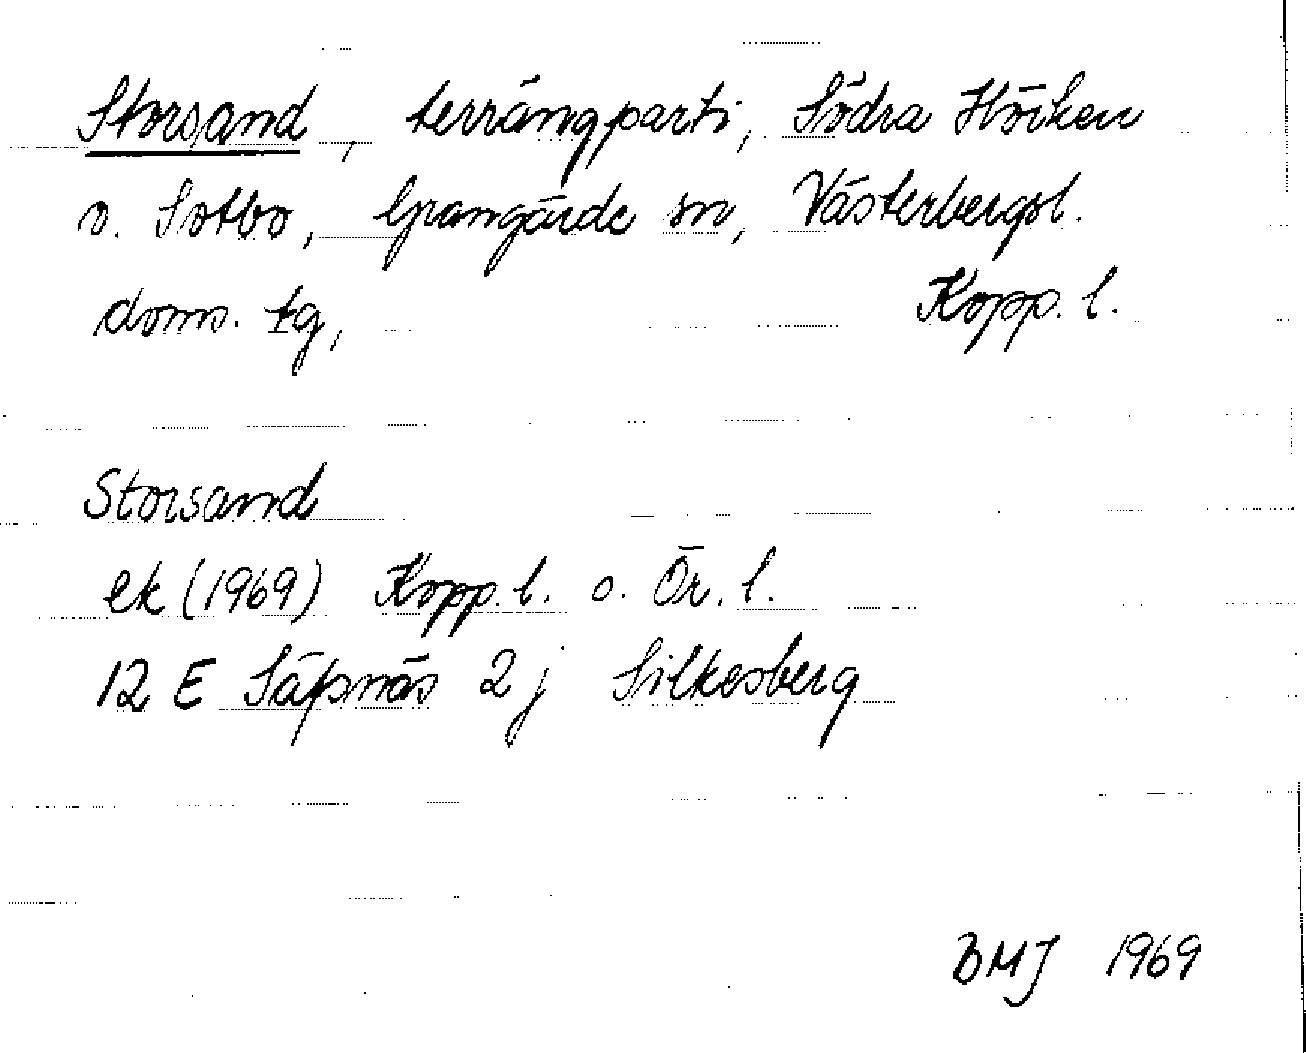 Storsand, terrängparti, Södra Hörken
o. Sotbo, Grangärde sn, Västerbergsl.
doms. tg, Kopp. l.
Storsand
ek (1969) Kopp. l. o. Ör. l.
12 E Säfsnäs 2 j Silkesberg
BMJ 1969